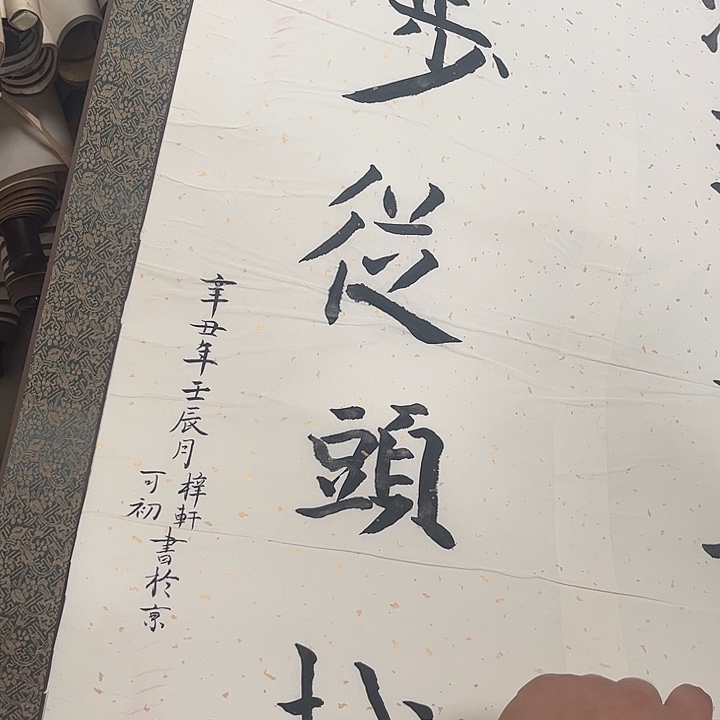 步從頭
辛丑年壬辰月梓軒
可初
書於京